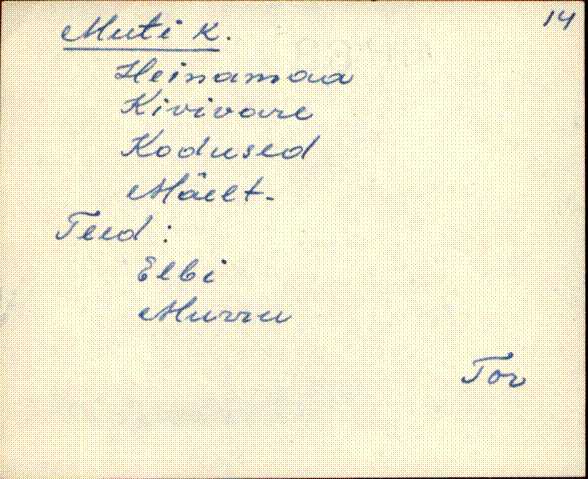 14
Muti k.
Heinamaa
Kivivare
Kodused
Mäelt-
Teed:
Elbi
Murru
Tor